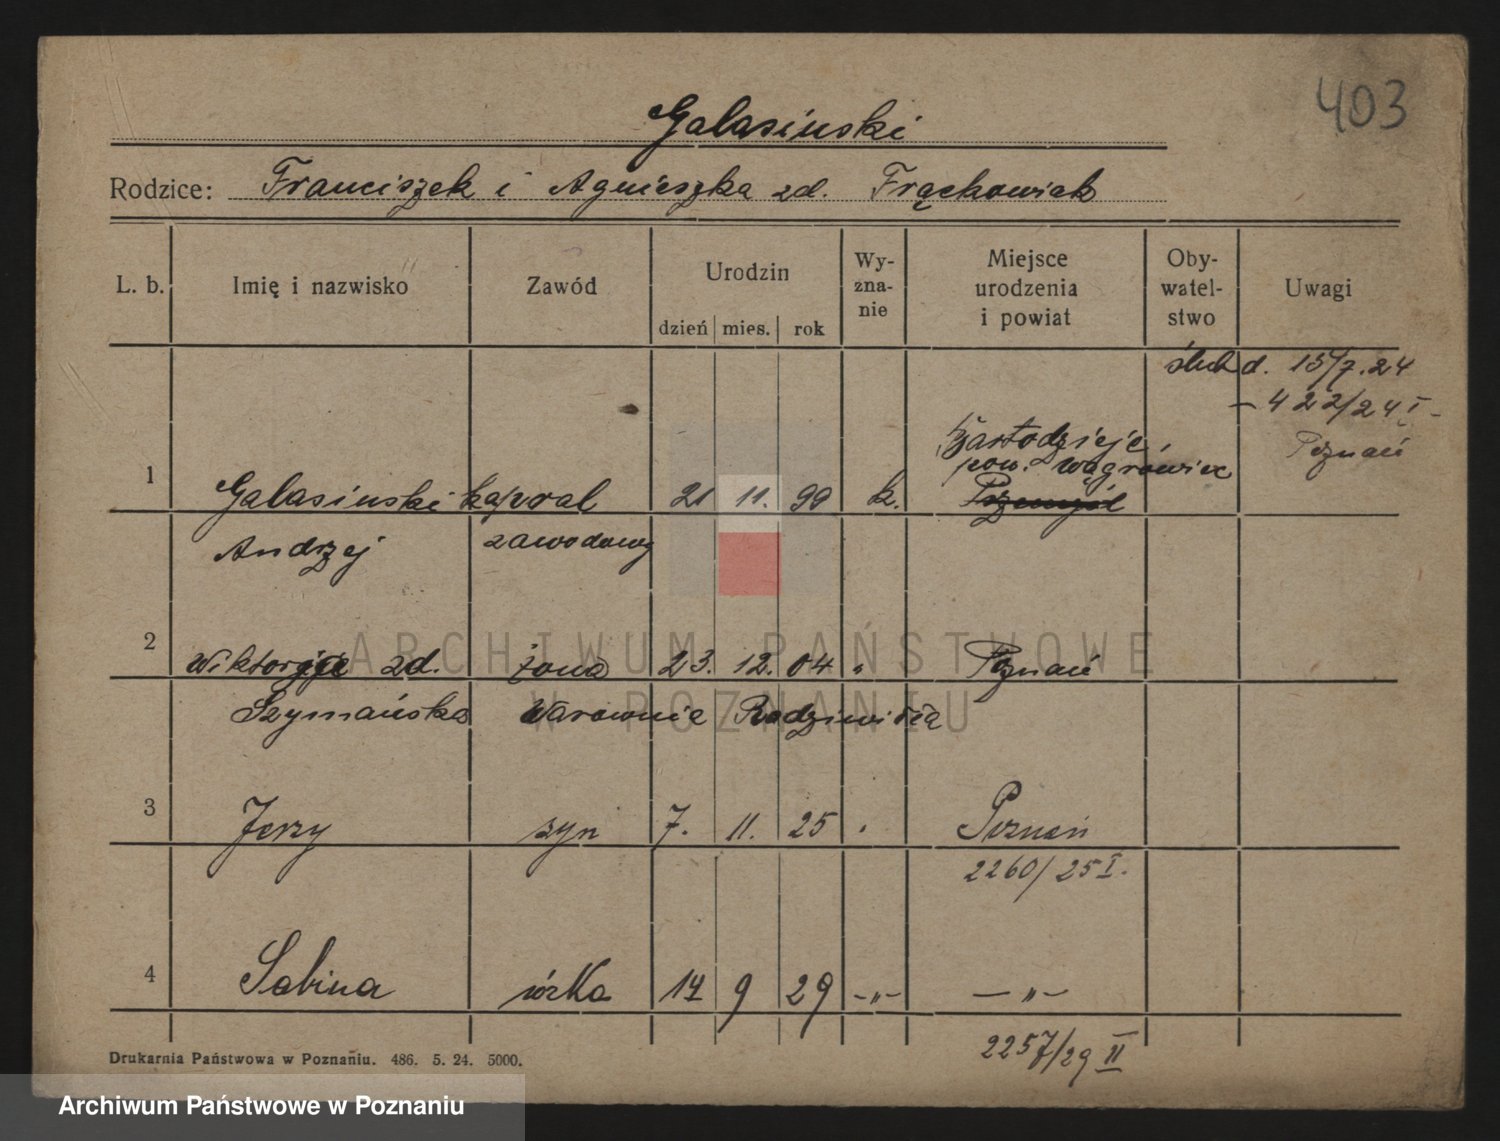 403
Galasinski
Rodzice: Franciszek i Agnieszka zd. Frąckowiak
L. b. Imię i nazwisko Zawód Urodzin Wy- zna- nie Miejsce urodzenia i powiat Oby- watel- stwo Uwagi
dzień mies. rok
ślub d. 15/7.24
- 422/24 I -
Poznań
pow. Wągrówiec
1 Galasinski kapral 21 11. 99 k. Przemyśl
Andrzej zawodowy
2 Wiktorja zd. żona 23. 12. 04 " Poznań
Szymańska Warownia Radziwiłła
3 Jerzy syn 7. 11. 25 " Poznań
2260/25 I.
4 Sabina córka 14 9 29 -"- -"-
2257/29 II
Drukarnia Państwowa w Poznaniu. 486. 5. 24. 5000.
ARCHIWUM PAŃSTWOWE
W POZNANIU
Archiwum Państwowe w Poznaniu